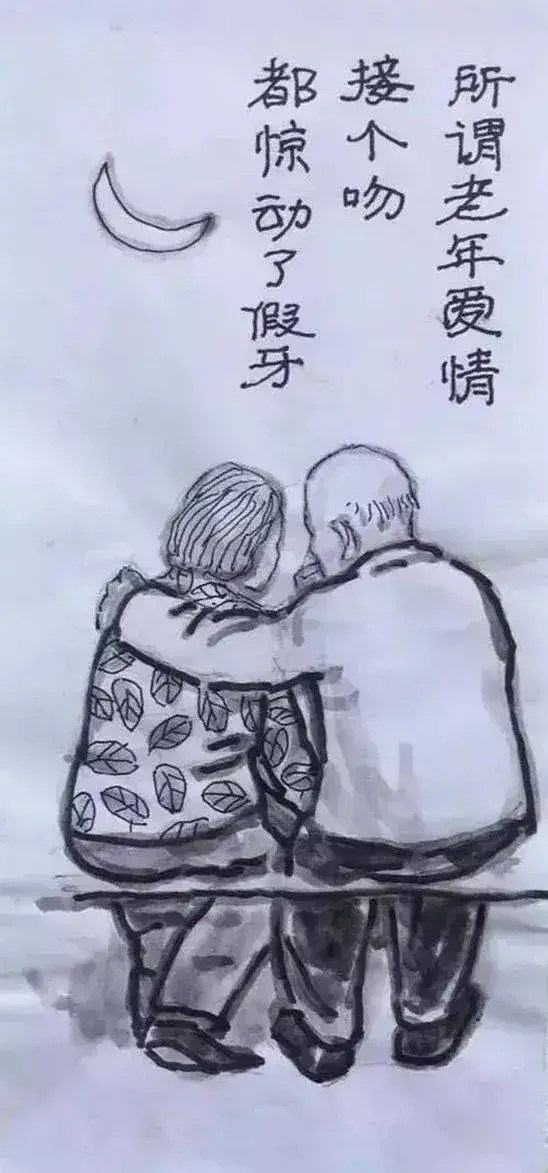 所谓老年爱情
接个吻
都惊动了假牙